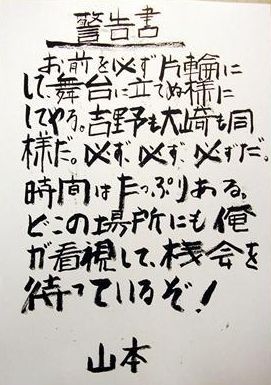 警告書
お前を必ず片輪に
して、舞台に立てぬ様に
してやる。吉野も大崎も同
様だ。必ず、必ず、必ずだ。
時間はたっぷりある。
どこの場所にも俺
が看視して、機会を
待っているぞ!
山本